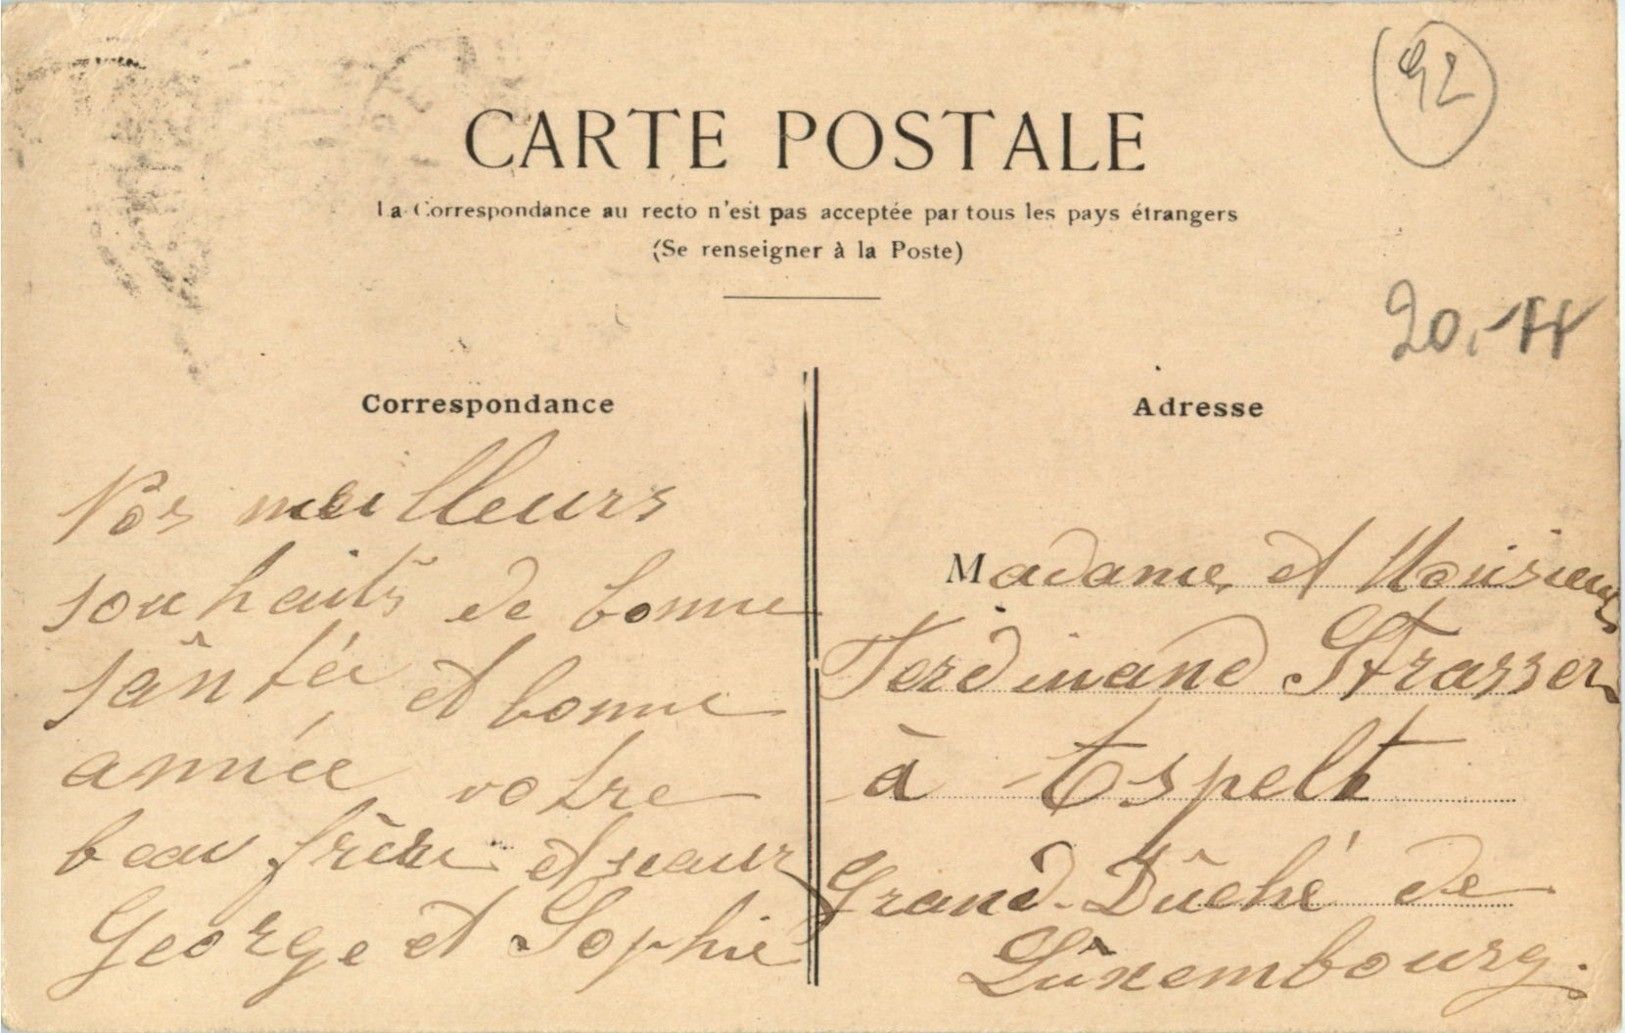 92
CARTE POSTALE
La Correspondance au recto n'est pas acceptée par tous les pays étrangers
(Se renseigner à la Poste)
20,-
Correspondance
Nos meilleurs
souhaits de bonne
sântée et bonne
année votre
beau frère et seaur
George et Sophie
Adresse
Madame et Monsieur
Ferdinand Strasser
à Espelt
Grand-Dûché de
Lûxembourg.